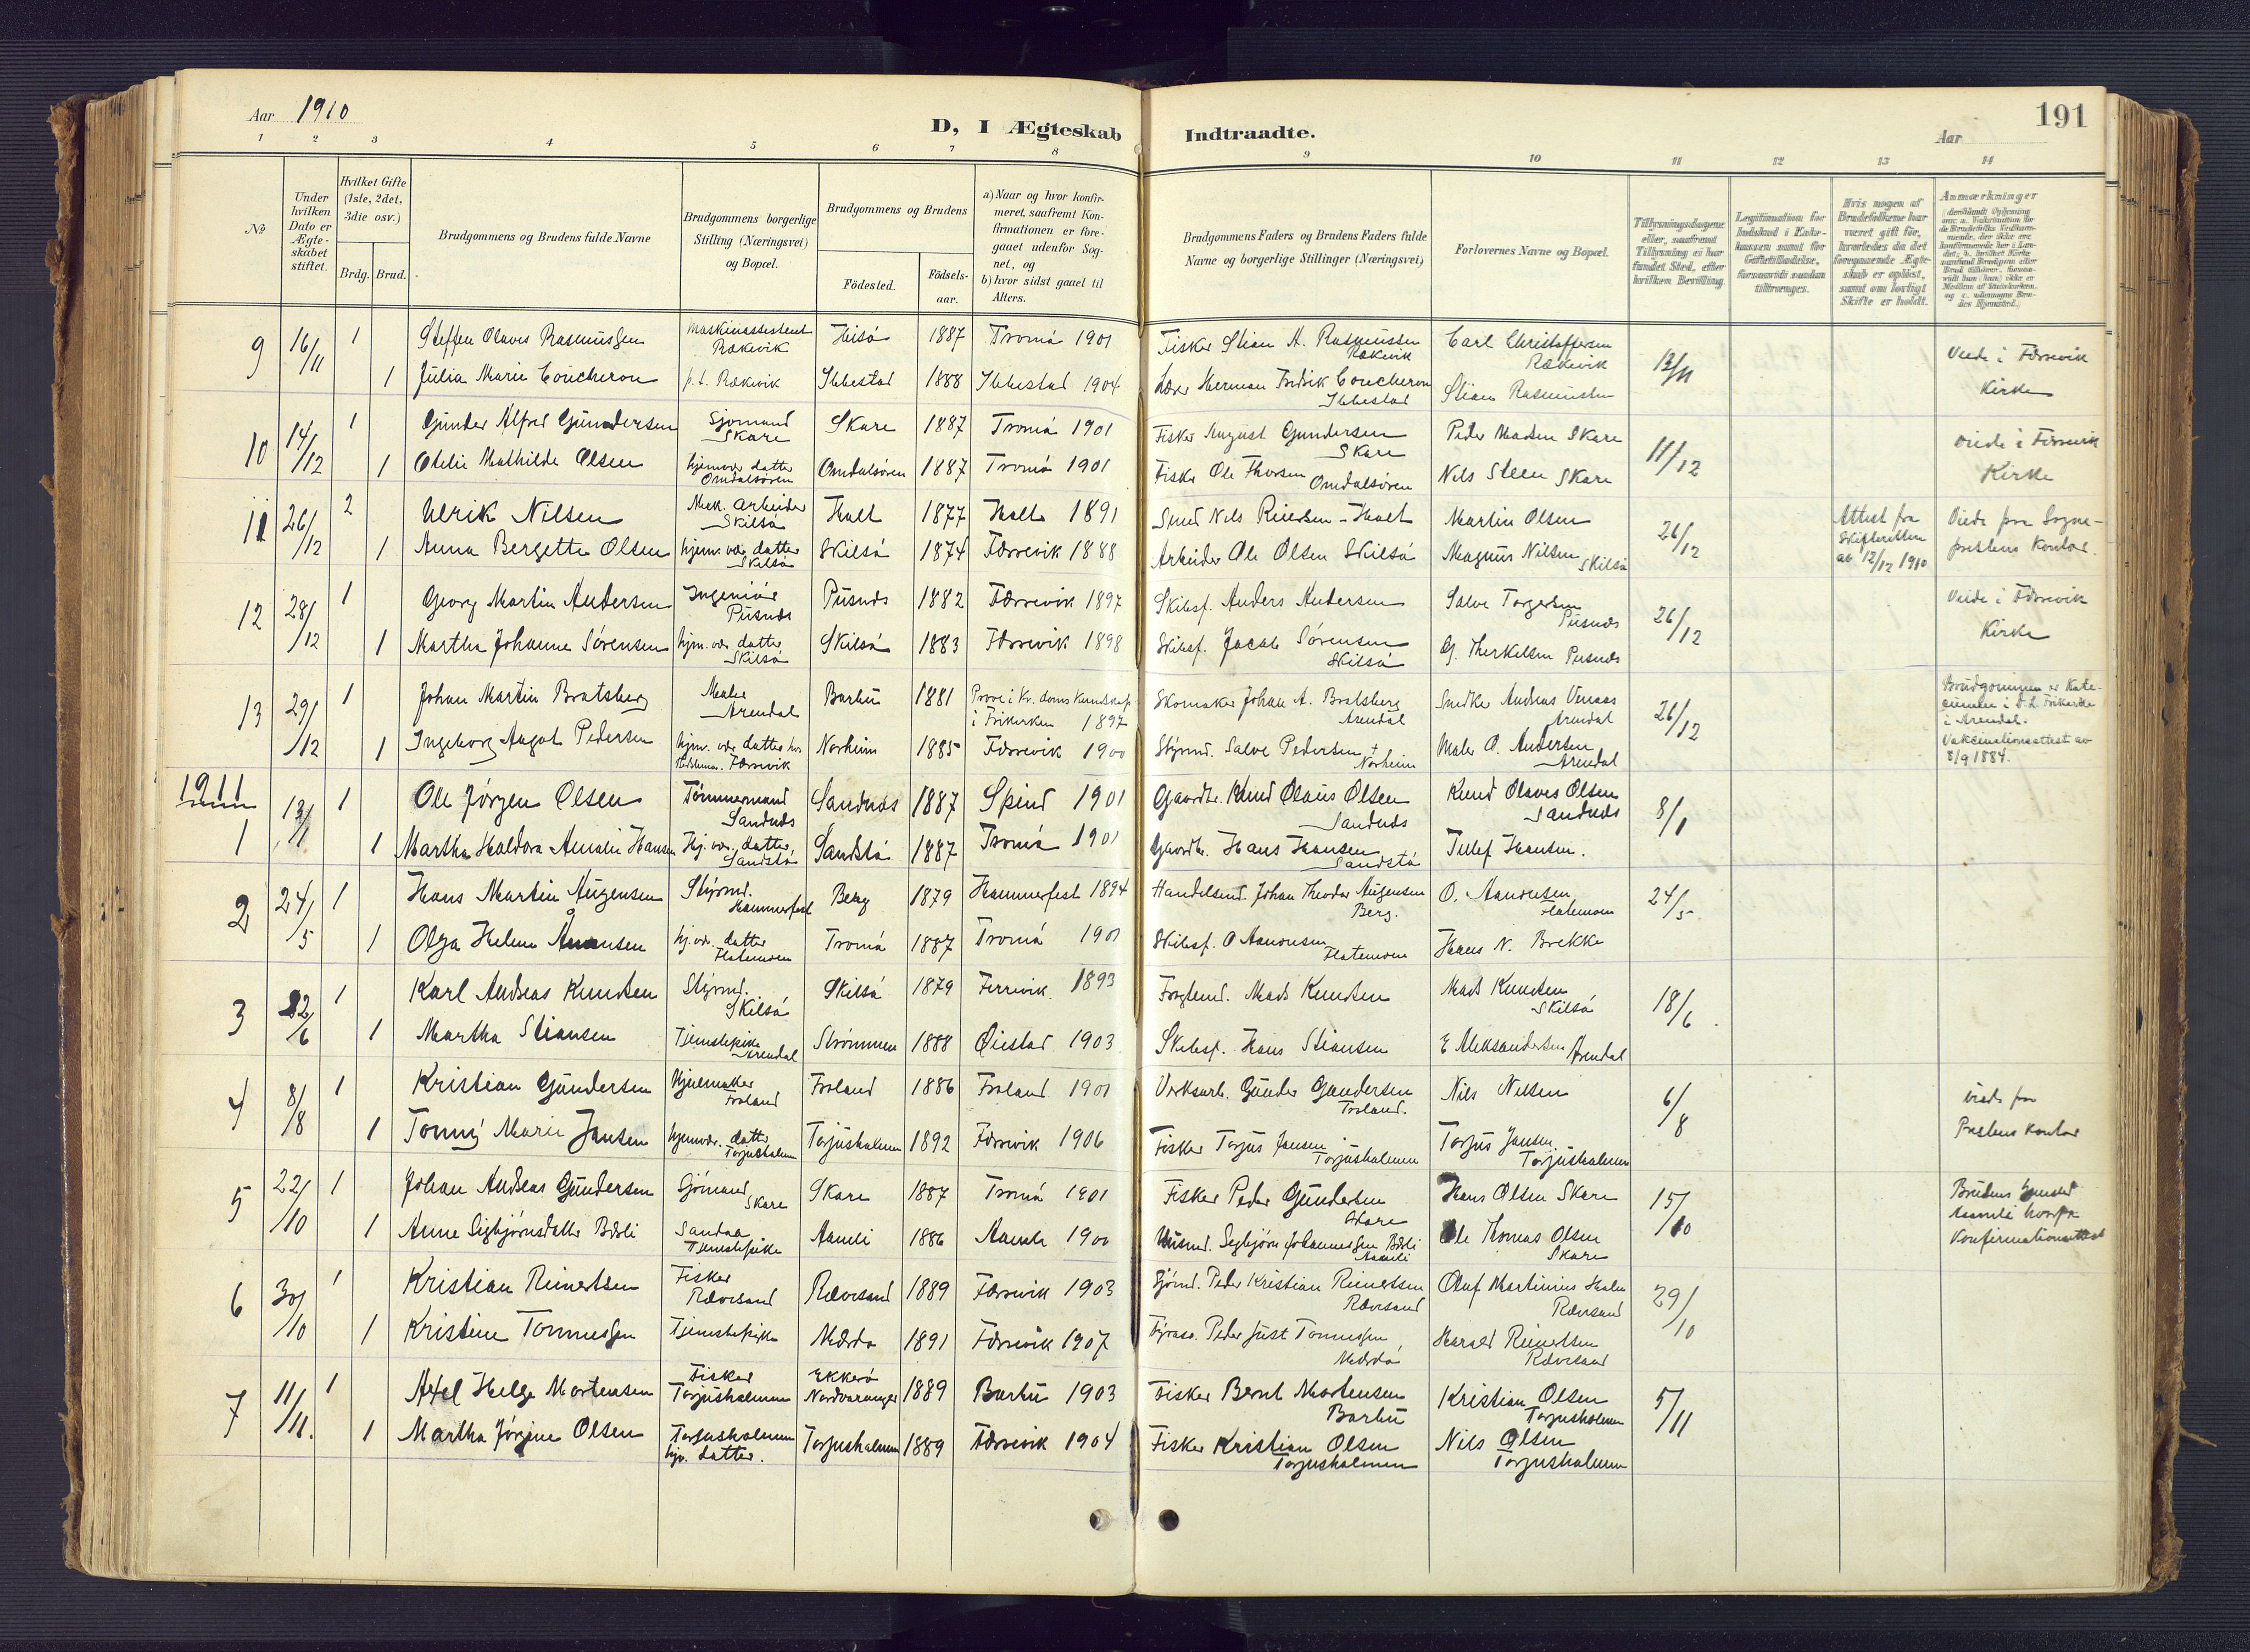 Aar 1910
D, I Ægteskab Indtraadte.
191
Aar
1 2 3 4 5 6 7 8 9 10 11 12 13 14
No
Under hvilken Dato er Ægteskabet stiftet.
Hvilket Gifte (1ste, 2det, 3die osv.)
Brdg. Brud.
Brudgommens og Brudens fulde Navne
Brudgommens borgerlige Stilling (Næringsvei) og Bopæl.
Brudgommens og Brudens
Födested.
Födselsaar.
a) Naar og hvor konfirmeret, saafremt Konfirmationen er foregaaet udenfor Sognet, og
b) hvor sidst gaaet til Alters.
Brudgommens Faders og Brudens Faders fulde Navne og borgerlige Stillinger (Næringsvei)
Forlovernes Navne og Bopæl.
Tillysningsdagene eller, saafremt Tillysning ei har fundet Sted, efter hvilken Bevilling.
Legitimation for Indskud i Enkekassen samt for Giftetilladelse, forsaavidt saadan tiltrænges.
Hvis nogen af Brudefolkene har været gift för, hvorledes da det foregaaende Ægteskab er oplöst, samt om lovligt Skifte er holdt.
Anmærkninger
9 16/11 1 Steffen Olaves Rasmussen Maskinassistent Rækevik Hisö 1887 Tromö 1901 Fisker Stian A. Rasmussen Rækevik Carl Christoffersen Rækevik 13/11 Viede i Færvik Kirke
1 Julia Marie Coucheron p.t. Rækevik Ibbestad 1888 Ibbestad 1904 Lærer Herman Fredrik Coucheron Ibbestad Stian Rasmussen
10 14/12 1 Gunder Alfred Gundersen Sjömand Skare Skare 1887 Tromö 1901 Fisker August Gundersen Skare Peder Madsen Skare 11/12 Viede i Færevik Kirke
1 Otelie Mathilde Olsen hjemmev. datter Omdalsören Omdalsören 1887 Tromö 1901 Fisker Ole Thorsen Omdalsören Nils Steen Skare
11 26/12 2 Ulrik Nilsen Mek. arbeider Skilsö Holt 1877 Holt 1891 Smed Nils Reiersen - Holt Martin Olsen 26/12 Attest fra Skifteretten av 12/12 1910 Viede paa Sogneprestens Kontor.
1 Anna Bergette Olsen hjem. vær. datter Skilsö Skilsö 1874 Færevik 1888 Arbeider Ole Olsen Skilsö Magnus Nilsen Skilsö
12 28/12 1 Georg Martin Andersen Ingeniör Pusnes Pusnes 1882 Færevik 1897 Skibsf. Anders Andersen Salve Torgersen Pusnes 26/12 Viede i Færevik Kirke
1 Martha Johanne Sörensen hjm. vær. datter Skilsö Skilsö 1883 Færevik 1898 Skibsf. Jacob Sörensen Skilsö G. Therkelsen Pusnes
13 29/12 1 Johan Martin Bratsberg Maler Arendal Barbu 1881 Pröve i Kr. doms Kundskap i Frikirken 1897 Skomaker Johan A. Bratsberg Arendal Snedker Andreas Arendal 26/12 Brudgommen er i D. L. Frikirke i Arendal. Vakcinationsattest av 8/9 1884.
1 Ingeborg Aagot Pedersen hjm. vær. datter Færevik Norheim 1885 Færevik 1900 Styrmd. Salve Pedersen + Norheim Maler O. Andersen Arendal
1911
1 13/1 1 Ole Jörgen Olsen Tömmermand Sandnes Sandnes 1887 Spind 1901 Gaardbr. Knud Olaus Olsen Sandnes Knud Olaves Olsen Sandnes 8/1
1 Martha Haldora Amalie Hansen Hj. vær. datter, Sandstö Sandstö 1887 Tromö 1901 Gaardbr. Hans Hansen Sandstö Tellef Hansen.
2 24/5 1 Hans Martin Aagensen Styrmd. Hammerfest Berg 1879 Hammerfest 1894 Handelsmd. Johan Theodor Aagensen Berg. O. Aanonsen Flatemoen 24/5.
1 Olga Helene Ånonsen hj. vær. datter Flatemoen Tromö 1887 Tromö 1901 Skibsf. O Aanonsen Flatemoen Hans N. Brekke
3 22/6 1 Karl Andreas Knudsen Styrmd. Skilsö Skilsö 1879 Færevik 1893 Mads Knudsen Mads Knudsen Skilsö 18/6.
1 Martha Stiansen Tjenestepike Arendal Strömmen 1888 Öiestad 1903 Skibsf. Hans Stiansen E Aleksandersen Arendal
4 8/8 1 Kristian Gundersen Hjulmaker Froland Froland 1886 Froland 1901 Verksarb. Gunder Gundersen Froland. Nils Nilsen 6/8 Viede paa Prestens Kontor
1 Tonny Marie Jansen hjemmevær. datter Torjusholmen Torjusholmen 1892 Færevik 1906 Fisker Torjus Jansen Torjusholmen Torjus Jansen Torjusholmen
5 22/10 1 Johan Andreas Gundersen Sjömand Skare Skare 1887 Tromö 1901 Fisker Peder Gundersen Skare Hans Olsen Skare 15/10 Brudens hjemsted Aamli hvorfra Konfirmationsattest
1 Anne Sigbjörnsdatter Bæsli Sandaa Tjenestepike Aamli 1886 Aamli 1900 Husmd. Sigbjörn Johannesen Bæsli Aamli Ole Thomas Olsen Skare
6 30/10 1 Kristian Reinertsen Fisker Rævesand Rævesand 1889 Færevik 1903 Sjömd. Peder Kristian Reinertsen Rævesand Oluf Martinius Rævesand 29/10
1 Kristine Tönnessen Tjenestepike Mærdö 1891 Færevik 1907 Peder Just Tönnessen Mærdö Harald Reinertsen Rævesand
7 11/11. 1 Axel Helge Mortensen Fisker Torjusholmen Ekkerö Nordvaranger 1889 Barbu 1903 Fisker Bernt Mortensen Barbu Kristian Olsen Torjusholmen 5/11
1 Martha Jörgine Olsen Torjusholmen hjv. datter. Torjusholmen 1889 Færevik 1904 Fisker Kristian Olsen Torjusholmen Nils Olsen Torjusholmen